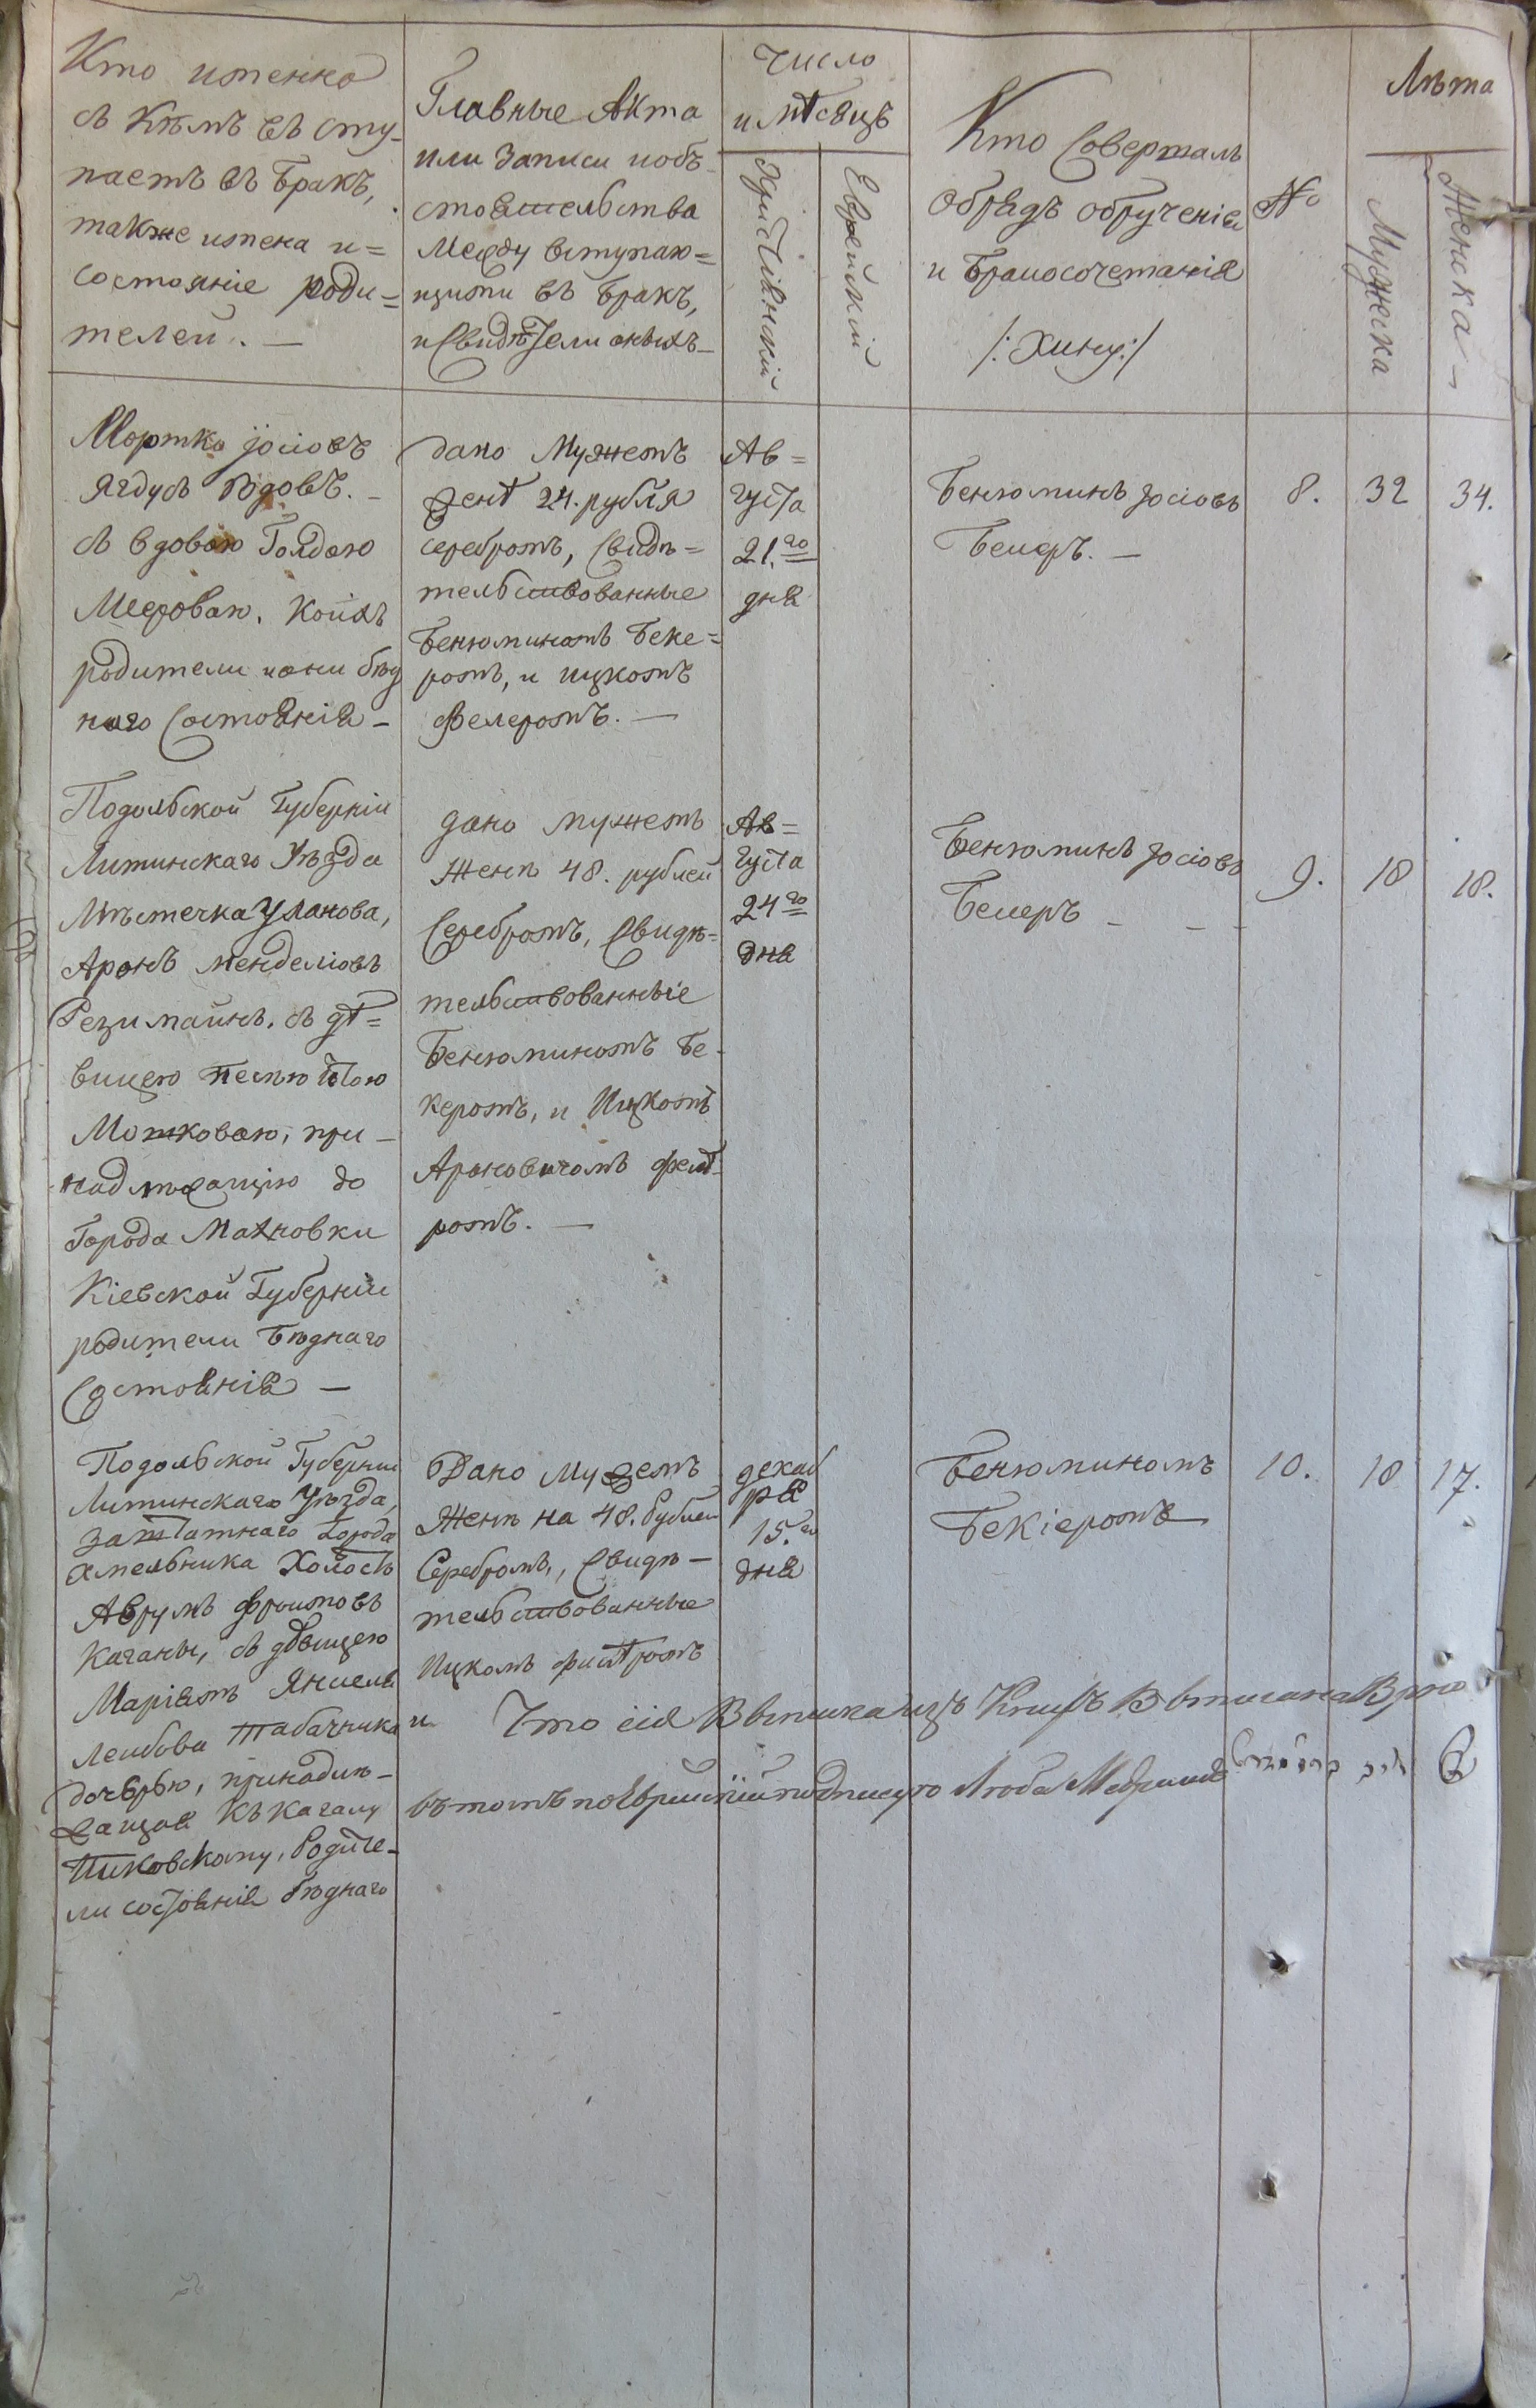 Кто именно
съ Кѣмъ въ сту-
паетъ въ Бракъ,
также имена и=
Состояніе роди=
телей. —
Главные Акта
или Записи и объ-
стоятельства
Между вступаю=
щими въ Бракъ,
и Свидѣтели оныхъ
Число
и Мѣсяцъ
Христіянскій
Еврейскій
Кто Совершалъ
обрядъ обрученія
и Бракосочетанія
/: Хипу :/
№
Лѣта
Мужеска
Женска —
Мортко Іосіовъ
Ягдусъ Вдовъ. —
съ вдовою Голдою
Меровою. Коихъ
родители и они бѣд
наго Состоянія —
дано Мужемъ
женѣ 24. рубля
серебромъ, Свидѣ=
тельствованные
Бенюминомъ Беке=
ромъ, и Ицкомъ
Фелеромъ. —
Ав=
густа
21.го
дня
Бенюминъ Іосіовъ
Бекеръ. —
8.
32
34.
Подольской Губерніи
Литинскаго Уѣзда
Мѣстечка Уланова,
Аронъ Менделіовъ
Резимаинъ. съ дѣ=
вицею
Мошковою, при —
надлежащію до
Города Махновки
Кіевской Губерніи
родители Бѣднаго
Состоянія —
дано мужемъ
Женѣ 48. рублей
Серебромъ, Свидѣ=
тельствованныіе
Бенюминомъ Бе-
керомъ, и Ицкомъ
Ароновичомъ
ромъ. —
Ав=
густа
24го
дня
Бенюминъ Іосіовъ
Бекеръ —
9.
18
18.
Подольской Губерніи
Литинскаго Уѣзда,
заштатнаго Города
Хмельника Холостъ
Аврумъ Фроимовъ
Каганъ, съ дѣвицею
Маріямъ Янкеля
Лейбова Табачника
дочерью, принадлѣ-
жащая Къ Кагалу
Пиковскому, Родите-
ли состоянія бѣднаго
Дано Мужемъ
Женѣ на 48. Рублей
Серебромъ, Свидѣ —
тельствованные
Ицкомъ
и
декаб
ря
15.го
дня
Бенюминомъ
Бекіеромъ
10.
18
17.
Что сія Выписка изъ Книгъ
въ томъ по Еврейскій подписую